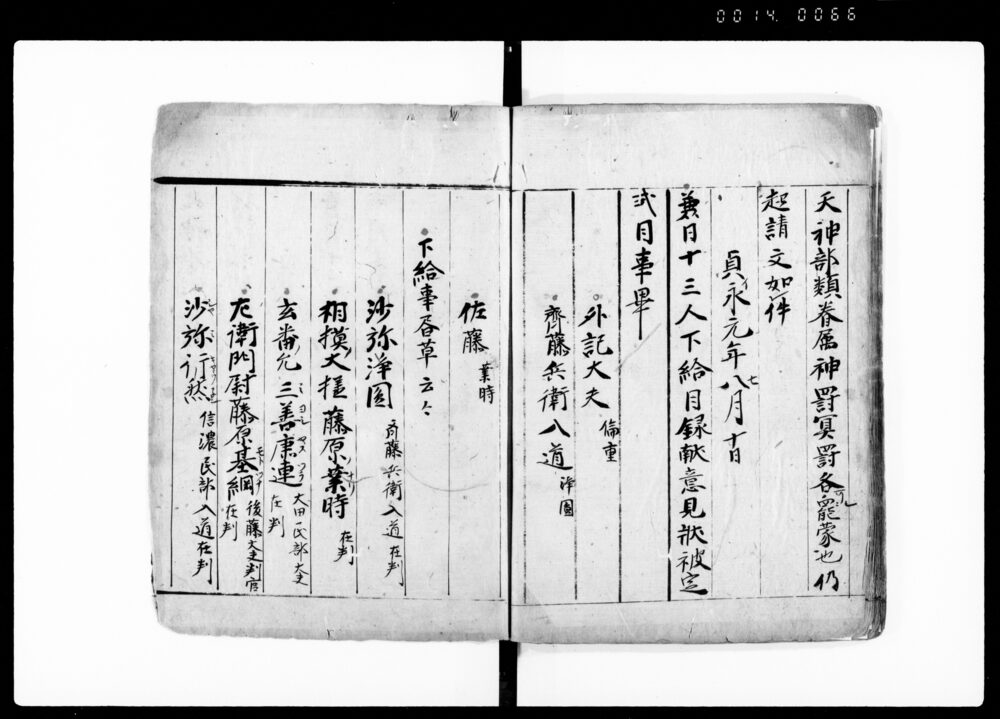 0014. 0066
天神部類眷属神罸冥罸各可罷蒙也仍
起請文如件
貞永元年八月十日
七
兼日十三人下給目録献意見状被定
式目事畢
外記大夫 倫重
齊藤兵衛入道 浄圓
佐藤 業時
下給事書草云々
沙弥浄圓 斉藤兵衛入道在判
相摸大掾藤原業時 在判
玄番允三善康連 大田民部大夫 在判
左衛門尉藤原基綱 後藤大夫判官 在判
沙弥行然 信濃民部入道在判